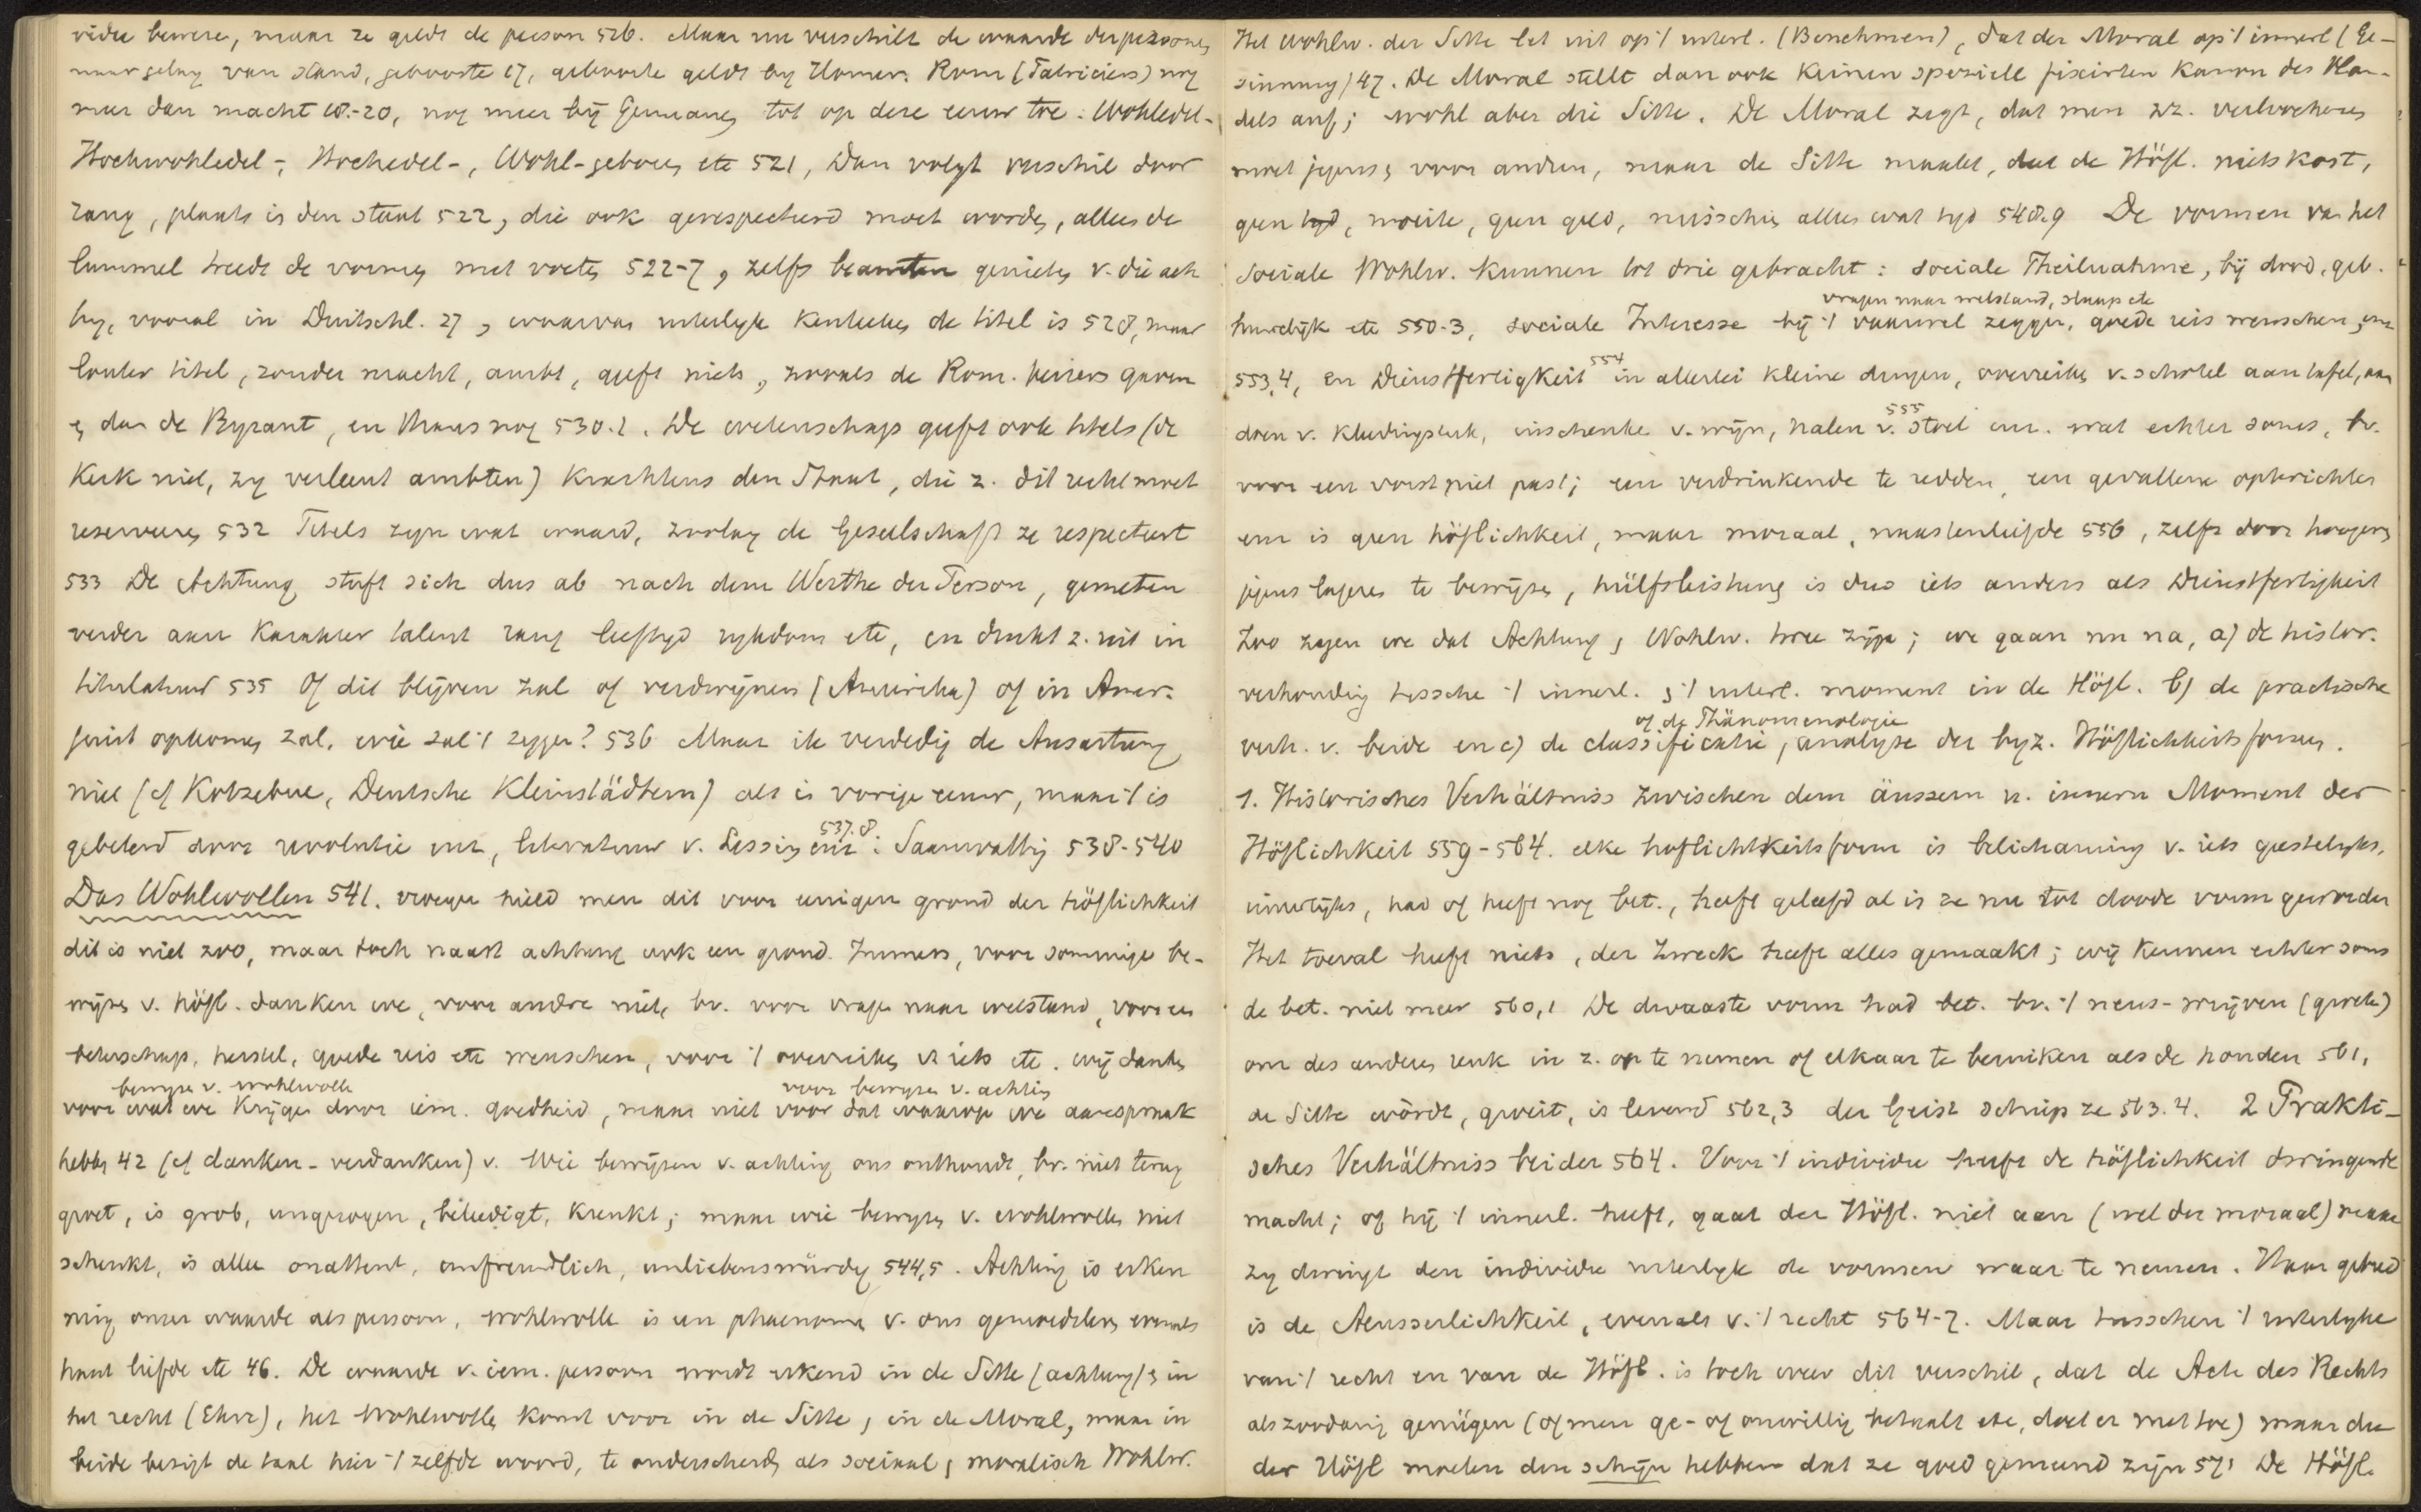 vidu bewere, maar ze geldt de person 516. Maar nu verschilt de waarde der personen
naar gelang van stand, geboorte 17, geboorte geldt by Homer. Rom (Patriciers) nog
meer dan macht 18-20, nog meer bij Germanen tot op deze eeuw toe: Wohledel-
Hochwohledel-, Hochedel-, Wohl-geboren etc 521, Dan volgt verschil door
rang, plaats in den staat 522, die ook gerespecteerd moet worden, alleen de
lummel treedt de vormen met voeten 522-7, zelfs beamten genieten v. die ach
ting, vooral in Duitschl. 27, waarvan uiterlyk kenteeken de titel is 528, maar
louter titel, zonder macht, ambt, geeft niets, zooals de Rom. keizers gaven
en dan de Byzant, en thans nog 530.1. De wetenschap geeft ook titels (de
Kerk niet, zy verleent ambten) krachtens den Staat, die z. dit recht moet
reserveeren 532 Titels zyn wat waard, zoolang de Gesellschaft ze respecteert
533 De Achtung stuft sich dus ab nach dem Werthe der Person, gemeten
verder aan karakter talent rang leeftyd rykdom etc, en drukt z. uit in
titulatuur 535 Of dit blijven zal of verdwijnen (Amerika) of in Amer.
juist opkomen zal, wie zal 't zeggen? 536 Maar ik verdedig de Ausartung
niet (cf Kotzebue, Deutsche Kleinstädtern) als in vorige eeuw, maar 't is
gebeterd door revolutie enz, literatuur v. Lessing enz 537.8: Saamvatting 538-540
Das Wohlwollen 541. vroeger hield men dit voor eenigen grond der höflichkeit
dit is niet zoo, maar toch naast achtung ook een grond. Immers, voor sommige be-
wijzen v. höfl. danken we, voor andre niet, bv. voor vragen naar welstand, voor een
beterschap, herstel, goede reis etc wenschen, voor 't overreiken v. iets etc. wij danken
voor wat we krijgen door iem. goedheid, maar niet voor dat waarop we aanspraak
bewyzen v. wohlwolle voor bewyzen v. achting
hebben 42 (cf danken - verdanken) v. Wie bewijzen v. achting ons onthoudt, bv. niet terug
groet, is grob, ungezogen, beleedigt, krenkt; maar wie bewyzen v. wohlwollen niet
schenkt, is alleen onattent, unfreundlich, unliebenswürdig 544,5. Achting is erken
ning onzer waarde als persoon, wohlwolle is een phaenomen v. ons gemoedsleven evenals
haat liefde etc 46. De waarde v. iem. persoon wordt erkend in de Sitte (achtung) en in
het recht (Ehre), het wohlwollen komt voor in de Sitte, in de Moral, maar in
beide bezigt de taal hier 't zelfde woord, te onderscheiden als sociaal en moralisch Wohlw.
Het Wohlw. der Sitte let uit op 't uiterl. (Benehmen), dat der Moral op 't innerl (Ge-
sinnung) 47. De Moral stellt dan ook keinen speziell fixirten kanon des Han-
dels auf; wohl aber die Sitte. De Moral zegt, dat men z. verloochenen
moet jegens en voor andren, maar de Sitte maakt, dat de Höfl. niets kost,
geen tyd, moeite, geen geld, misschien alleen wat tyd 548.9 De vormen van het
sociale Wohlw. kunnen tot drie gebracht: sociale Theilnahme, bij dood, geb.
vragen naar welstand, slaap etc
huwelijk etc 550-3, sociale Interesse bij 't vaarwel zeggen, goede reis wenschen, enz
553,4, en Dienstfertigkeit 554 in allerlei kleine dingen, overreiken v. schotel aan tafel, aan
doen v. kleedingstuk, inschenke v. wijn, halen v. stoel 555 enz. wat echter soms, bv.
voor een vorst niet past; een verdrinkende te redden, een gevallene opterichten
enz is geen höflichkeit, maar moraal, naastenliefde 556, zelfs door hoogere
jegens lagere te bewijzen, hülfsleistung is dus iets anders als Dienstfertigkeit
Zoo zagen we dat Achtung en Wohlw. twee zijn; we gaan nu na, a) de histor.
verhouding tussche 't innerl. en 't uiterl. moment in de Höfl. b) de practische
of de Phänomenologie
verh. v. beide en c) de classificatie, analyse der byz. Höflichkeitsformen.
1. Historisches Verhältniss zwischen dem äussern u. innern Moment der
Höflichkeit 559-564. elke hoflichtkeitsform is belichaming v. iets geestelyks,
innerlyks, had of heeft nog bet., heeft geleefd al is ze nu tot doode vorm geworden
Het toeval heeft niets, der Zweck heeft alles gemaakt; wij kennen echter soms
de bet. niet meer 560,1 De dwaaste vorm had bet. bv. 't neus-wrijven (groeten)
om des anderen reuk in z. op te nemen of elkaar te beruiken als de honden 561,
de Sitte wordt, groeit, is levend 562,3 der Geist schiep ze 563.4. 2 Prakti-
sches Verhältniss beider 564. Voor 't individu heeft de höflichkeit dwingende
macht; of hij 't innerl. heeft, gaat der Höfl. niet aan (wel der moraal) maar
zy dwingt den individu uiterlyk de vormen waar te nemen. Haar gebied
is de Aeusserlichkeit, evenals v. 't recht 564-7. Maar tusschen 't uiterlyke
van 't recht en van de Höfl. is toch weer dit verschil, dat de Acte des Rechts
als zoodanig genügen (of men ge- of onwillig betaalt etc, doet er niet toe) maar die
der Höfl moeten den schijn hebben dat ze goed gemeend zijn 571 De Höfl.